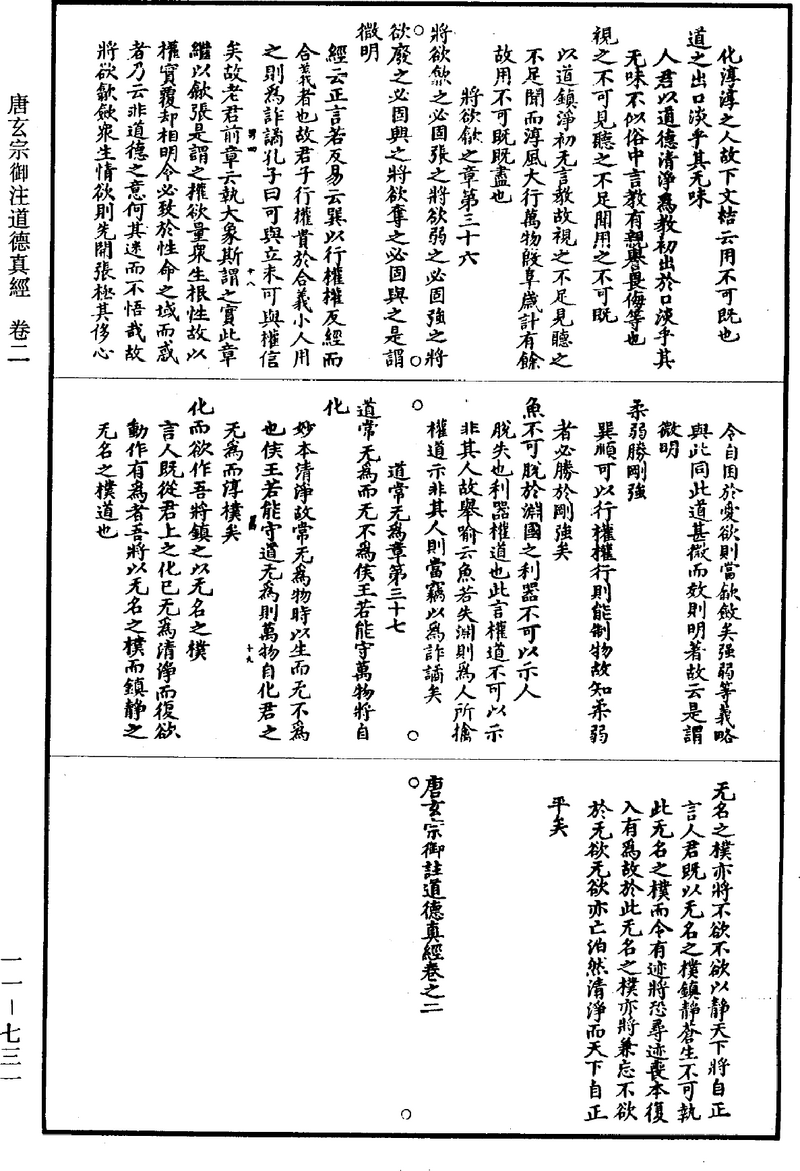 唐玄宗御注道德真經　卷二
一一－七三一
化淳淳之人故下文結云用不可既也
道之出口淡乎其无味
人君以道德清淨為教初出於口淡乎其
无味不似俗中言教有親譽畏侮等也
視之不可見聽之不足聞用之不可既
以道鎮淨初无言教故視之不足見聽之
不足聞而淳風大行萬物殷阜歲計有餘
故用不可既既盡也
將欲歙之章第三十六
將欲歙之必固張之將欲弱之必固強之將
欲廢之必固興之將欲奪之必固與之是謂
微明
經云正言若反易云巽以行權權反經而
合義者也故君子行權貴於合義小人用
之則為詐譎孔子曰可與立未可與權信
矣故老君前章云執大象斯謂之實此章
繼以歙張是謂之權欲量眾生根性故以
權實覆却相明令必致於性命之域而惑
者乃云非道德之意何其迷而不悟哉故
將欲歙歛眾生情欲則先開張極其侈心
令自困於愛欲則當歙斂矣强弱等義略
與此同此道甚微而效則明著故云是謂
微明
柔弱勝剛強
巽順可以行權權行則能制物故知柔弱
者必勝於剛強矣
魚不可脫於淵國之利器不可以示人
脫失也利器權道也此言權道不可以示
非其人故舉喻云魚若失淵則為人所擒
權道示非其人則當竊以為詐譎矣
道常无為章第三十七
道常无為而无不為侯王若能守萬物將自
化
妙本清淨故常无為物時以生而无不為
也侯王若能守道无為則萬物自化君之
无為而淳樸矣
化而欲作吾將鎮之以无名之樸
言人既從君上之化已无為清淨而復欲
動作有為者吾將以无名之樸而鎮静之
无名之樸道也
无名之樸亦將不欲不欲以静天下將自正
言人君既以无名之樸鎮静蒼生不可執
此无名之樸而令有迹將恐尋迹喪本復
入有為故於此无名之樸亦將兼忘不欲
於无欲无欲亦亡泊然清淨而天下自正
平矣
唐玄宗御註道德真經卷之二